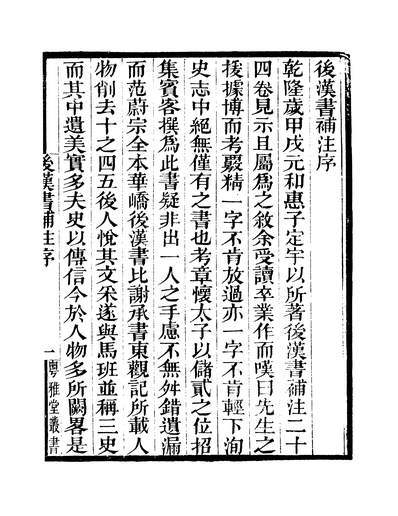 後漢書補注序
乾隆歲甲戌元和惠子定宇以所著後漢書補注二十
四卷見示且屬爲之敘余受讀卒業作而嘆曰先生之
援據博而考覈精一字不肯放過亦一字不肯輕下洵
史志中絕無僅有之書也考章懷太子以儲貳之位招
集賓客撰爲此書疑非出一人之手慮不無舛錯遺漏
而范蔚宗全本華嶠後漢書比謝承書東觀記所載人
物削去十之四五後人悅其文采遂與馬班並稱三史
而其中遺美實多夫史以傳信今於人物多所闕畧是
後漢書補注序
一
粵雅堂叢書